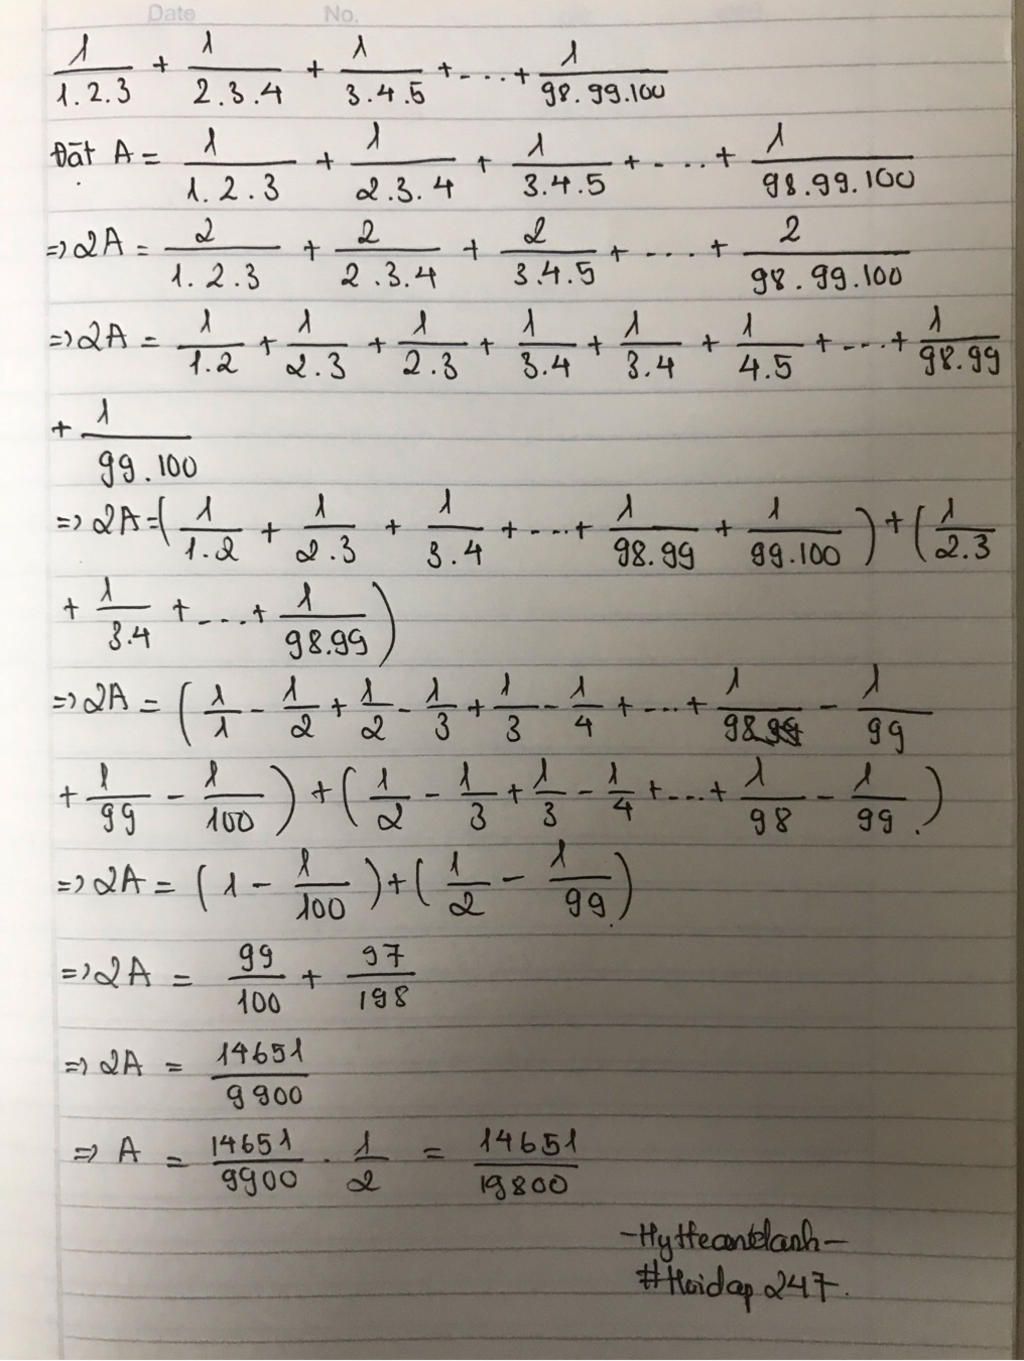 Date No.
1/1.2.3 + 1/2.3.4 + 1/3.4.5 +...+ 1/98.99.100
Đặt A = 1/1.2.3 + 1/2.3.4 + 1/3.4.5 +...+ 1/98.99.100
=> 2A = 2/1.2.3 + 2/2.3.4 + 2/3.4.5 +...+ 2/98.99.100
=> 2A = 1/1.2 + 1/2.3 + 1/2.3 + 1/3.4 + 1/3.4 + 1/4.5 +...+ 1/98.99
+ 1/99.100
=> 2A = (1/1.2 + 1/2.3 + 1/3.4 +...+ 1/98.99 + 1/99.100) + (1/2.3
+ 1/3.4 +...+ 1/98.99)
=> 2A = (1/1 - 1/2 + 1/2 - 1/3 + 1/3 - 1/4 +...+ 1/98 - 1/99
+ 1/99 - 1/100) + (1/2 - 1/3 + 1/3 - 1/4 +...+ 1/98 - 1/99)
=> 2A = (1 - 1/100) + (1/2 - 1/99)
=> 2A = 99/100 + 97/198
=> 2A = 14651/9900
=> A = 14651/9900 . 1/2 = 14651/19800
#Hoidap247.